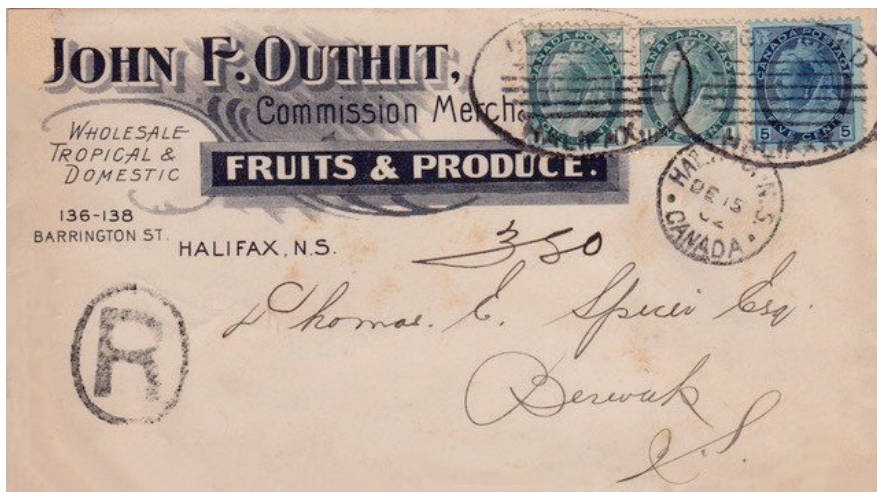 JOHN F. OUTHIT,
Commission Mercha
WHOLESALE
TROPICAL &
DOMESTIC
FRUITS & PRODUCE.
136-138
BARRINGTON ST.
HALIFAX, N.S.
CANADA POSTAGE
CANADA POSTAGE
CANADA POSTAGE
5 FIVE CENTS 5
HALIFAX
HALIFAX
HALIFAX, N.S.
DE 15
02
CANADA
350
R
Thomas. E. Spicer Esq.
Berwick
N.S.